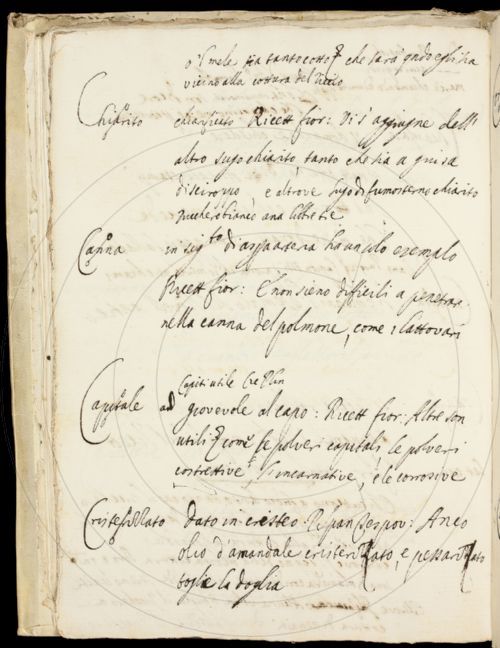 o 'l mele sia tanto cotto che sarà quando egli sia
vicino alla cottura del
Chiarito chiarificato Ricett fior: Vi s' aggiugne dell'
altro sugo chiarito, tanto che sia a guisa
di sciroppo, e altrove sugo di fumosterno chiarito
zucchero bianco ana libbre tre
Canna in sigto d'aspra arteria ha un solo esemplo
Ricett fior: E non sieno difficili a penetrar
nella canna del polmone, come i lattovari
Capitale
ad giovevole al capo: Ricett fior: Altre son
utili come le polveri capitali, le polveri
costrettive, l' incarnative, e le corrosive
Cristerizzato dato in cristeo. Anco
olio d'amandale cristerizzato, e pessarizzato
toglie la doglia